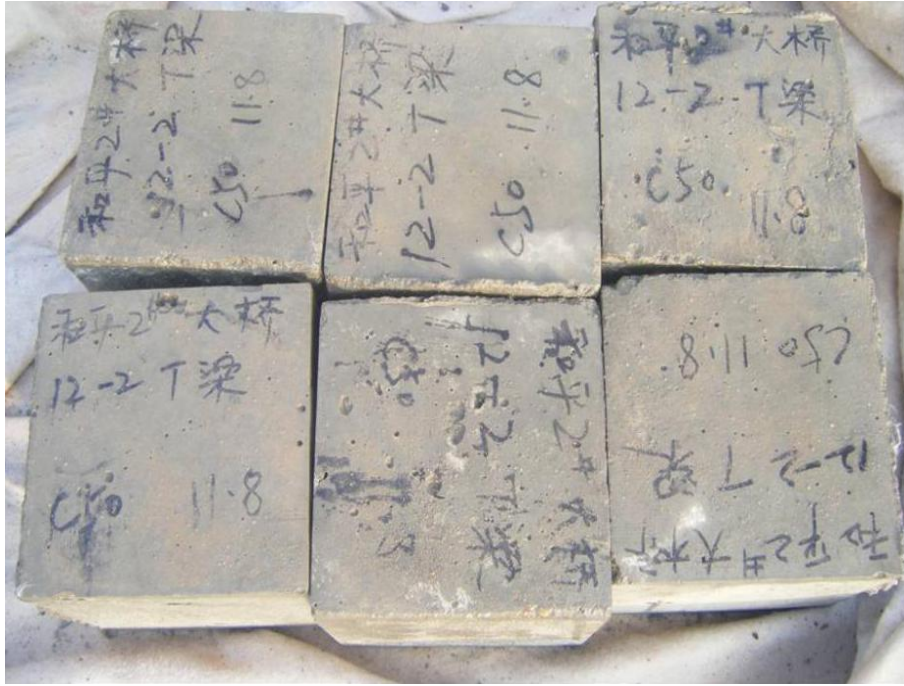 和平2#大桥
12-2 T梁
C50 11.8
和平2#大桥
12-2 T梁
C50 11.8
和平2#大桥
12-2 T梁
C50
11.8
和平2#大桥
12-2 T梁
C50 11.8
和平2#大桥
12-2 T梁
C50 11.8
和平2#大桥
12-2 T梁
C50 11.8